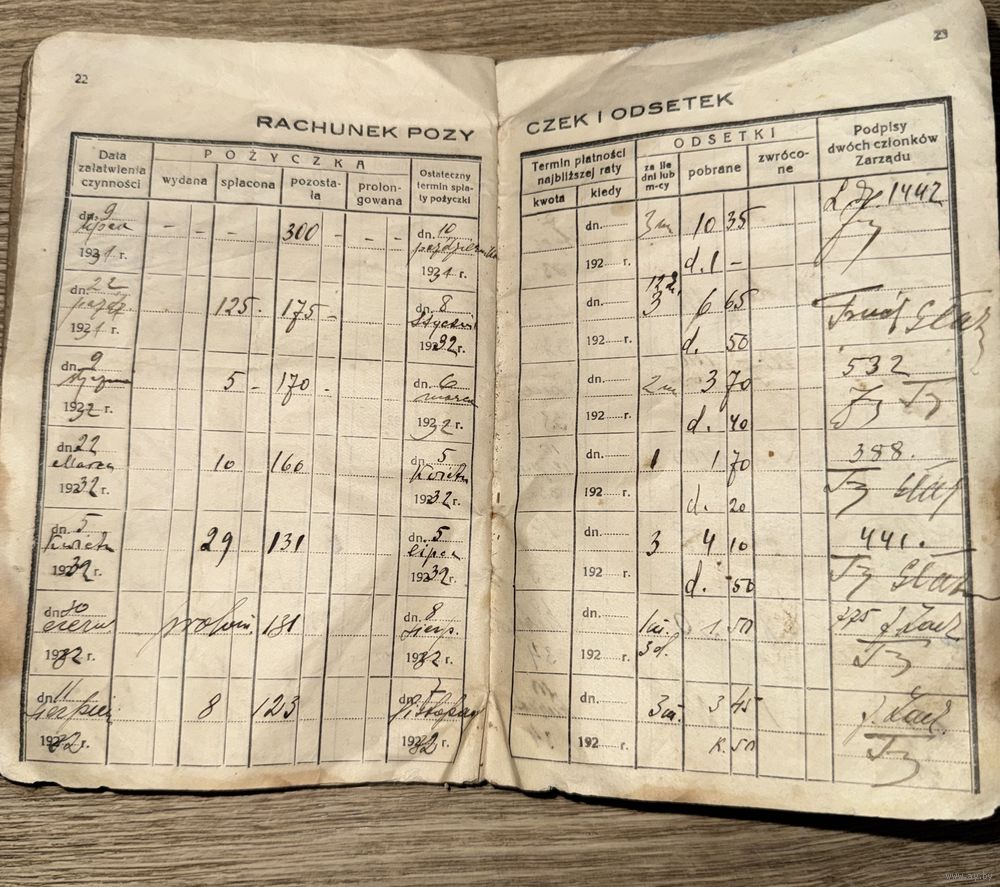 22
23
RACHUNEK POŻY
CZEK I ODSETEK
Data załatwienia czynności
POŻYCZKA
wydana
spłacona
pozosta-
ła
prolon-
gowana
Ostateczny
termin spła-
ty pożyczki
Termin płatności
najbliższej raty
kwota
kiedy
ODSETKI
za ile
dni lub
m-cy
pobrane
zwróco-
ne
Podpisy
dwóch członków
Zarządu
dn. 9 - - - 300 - - - dn. 10 dn. 3 m 10 35 1442
lipca październik
1931 r. 1931 r. 192 r. d. 1 -
dn. 22 125. 175 - dn. 8 dn. 3 6 65
paźdz. Stycz
1931 r. 1932 r. 192 r. d. 50
dn. 9 5 - 170 - dn. 6 dn. 2 m 3 70 532
marca
1932 r. 1932 r. 192 r. d. 40
dn. 22 10 160 dn. 5 dn. 1 1 70 388.
Marca Kwiet
1932 r. 1932 r. 192 r. d. 20
dn. 5 29 131 dn. 5 dn. 3 4 10 441.
Kwiet lipca
1932 r. 1932 r. 192 r. d. 50
dn. 30 prolon. 131 dn. 8 dn. 1 m. 1. 50
czerw. sierp.
1932 r. 1932 r. 192 r. 3 d.
dn. 11 8 123 dn. 7 dn. 3 m. 3 45
sierpień listopad
1932 r. 1932 r. 192 r. k. 50
www.ay.by